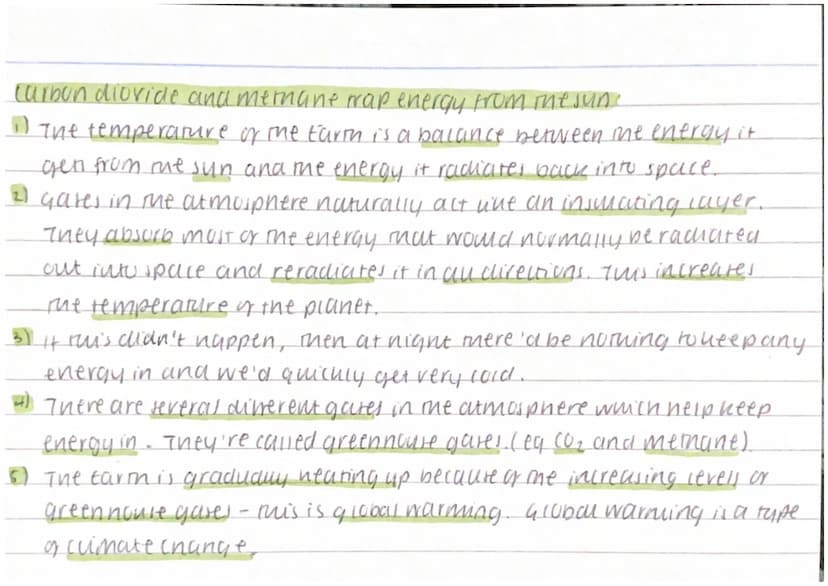 carbon dioxide and methane trap energy from the sun:
1) The temperature of the Earth is a balance between the energy it
gets from the sun and the energy it radiates back into space.
2) Gases in the atmosphere naturally act like an insulating layer.
They absorb most of the energy that would normally be radiated
out into space and reradiates it in all directions. This increases
the temperature of the planet.
3) If this didn't happen, then at night there'd be nothing to keep any
energy in and we'd quickly get very cold.
4) There are several different gases in the atmosphere which help keep
energy in. They're called greenhouse gases. (eg CO₂ and methane)
5) The Earth is gradually heating up because of the increasing levels of
greenhouse gases - this is global warming. Global warming is a type
of climate change.